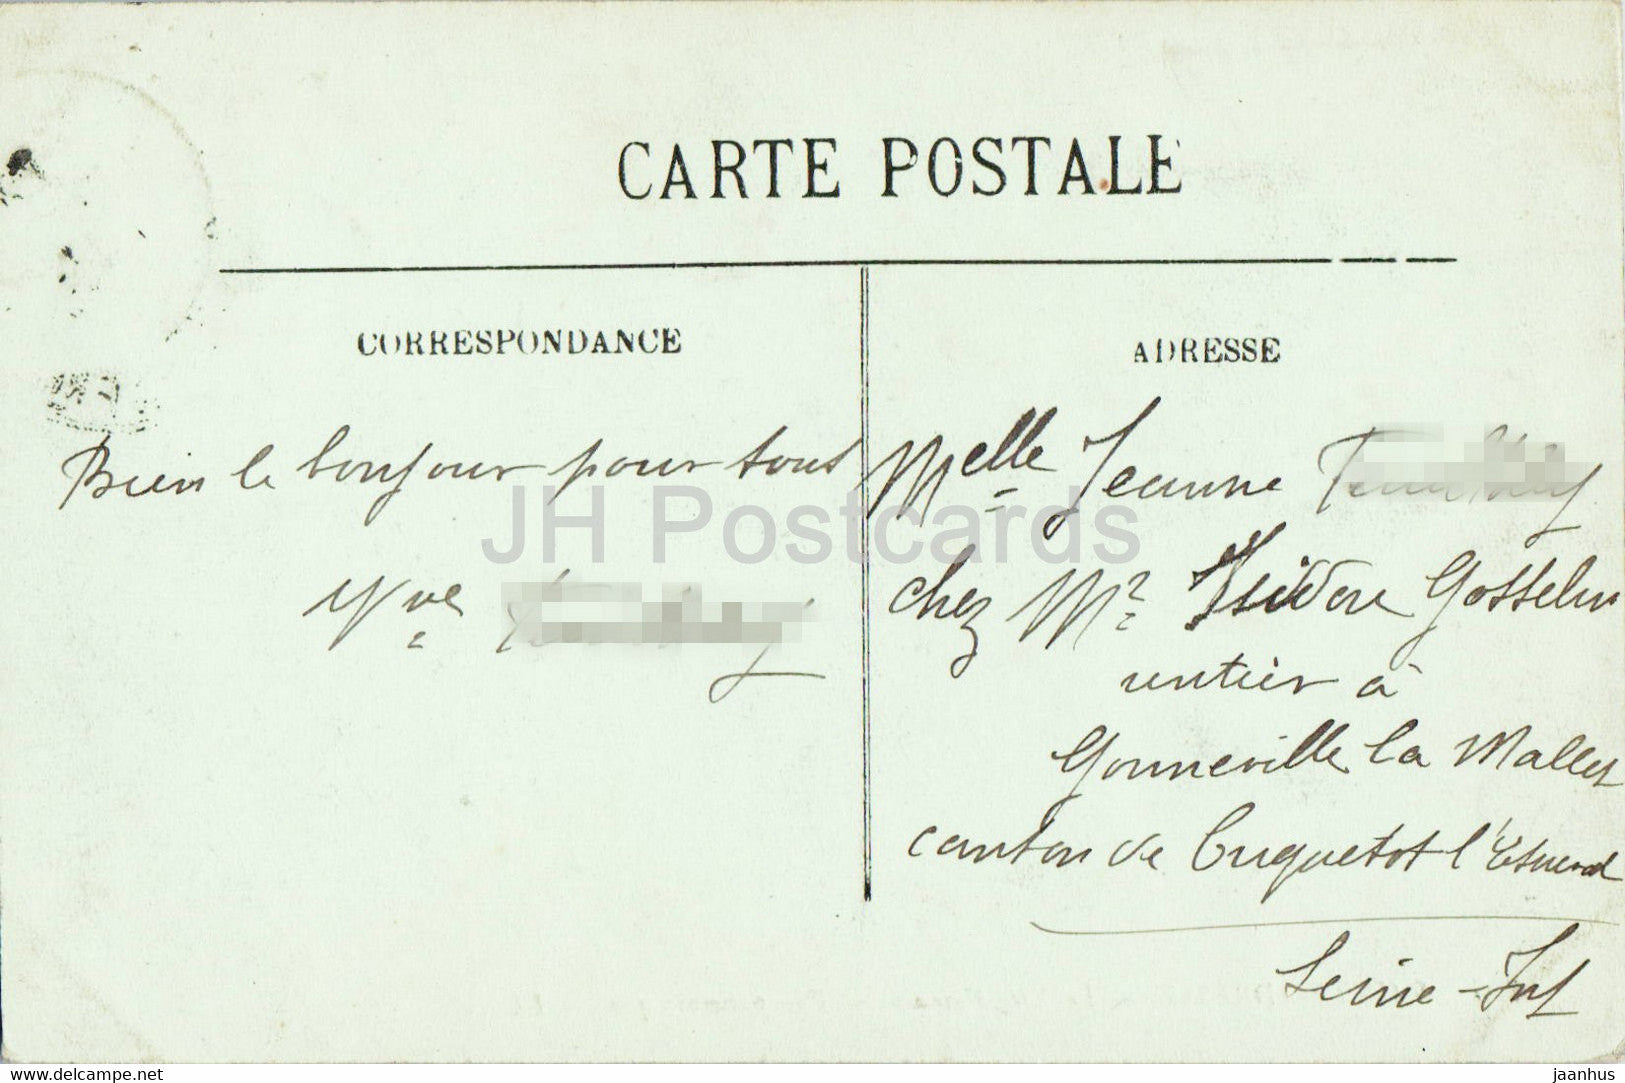 CARTE POSTALE
CORRESPONDANCE
Bien le bonjour pour tous
Vve
ADRESSE
Melle Jeanne
chez Mr Isidore Gosselin
rentier à
Gonneville la Mallet
canton de Criquetot l'Esneval
Seine-Inf
JH Postcards
www.delcampe.net
jaanhus